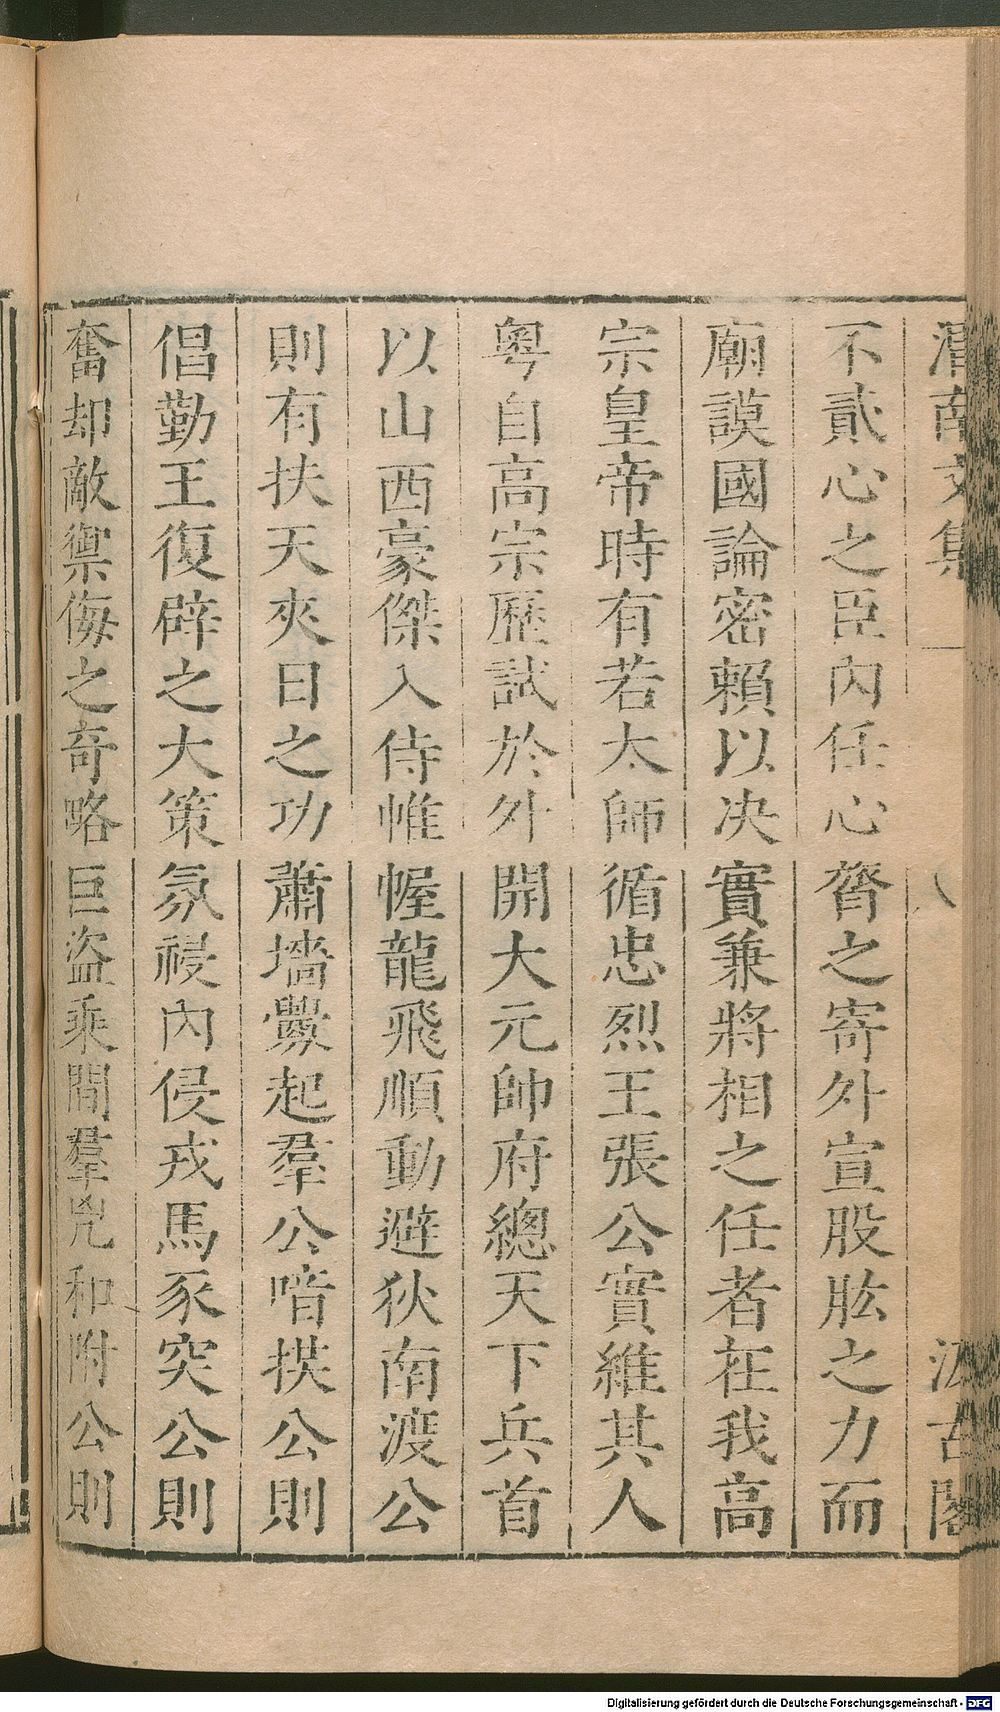 渭南文集 一 八 汲古閣
不貳心之臣內任心膂之寄外宣股肱之力而
廟謨國論密賴以决實兼將相之任者在我高
宗皇帝時有若太師循忠烈王張公實維其人
粵自高宗歷試於外開大元帥府總天下兵首
以山西豪傑入侍帷幄龍飛順動避狄南渡公
則有扶天夾日之功蕭墻釁起羣公喑拱公則
倡勤王復辟之大策氛祲內侵戎馬豕突公則
奮却敵禦侮之奇略巨盜乘間羣兇和附公則
Digitalisierung gefördert durch die Deutsche Forschungsgemeinschaft - DFG